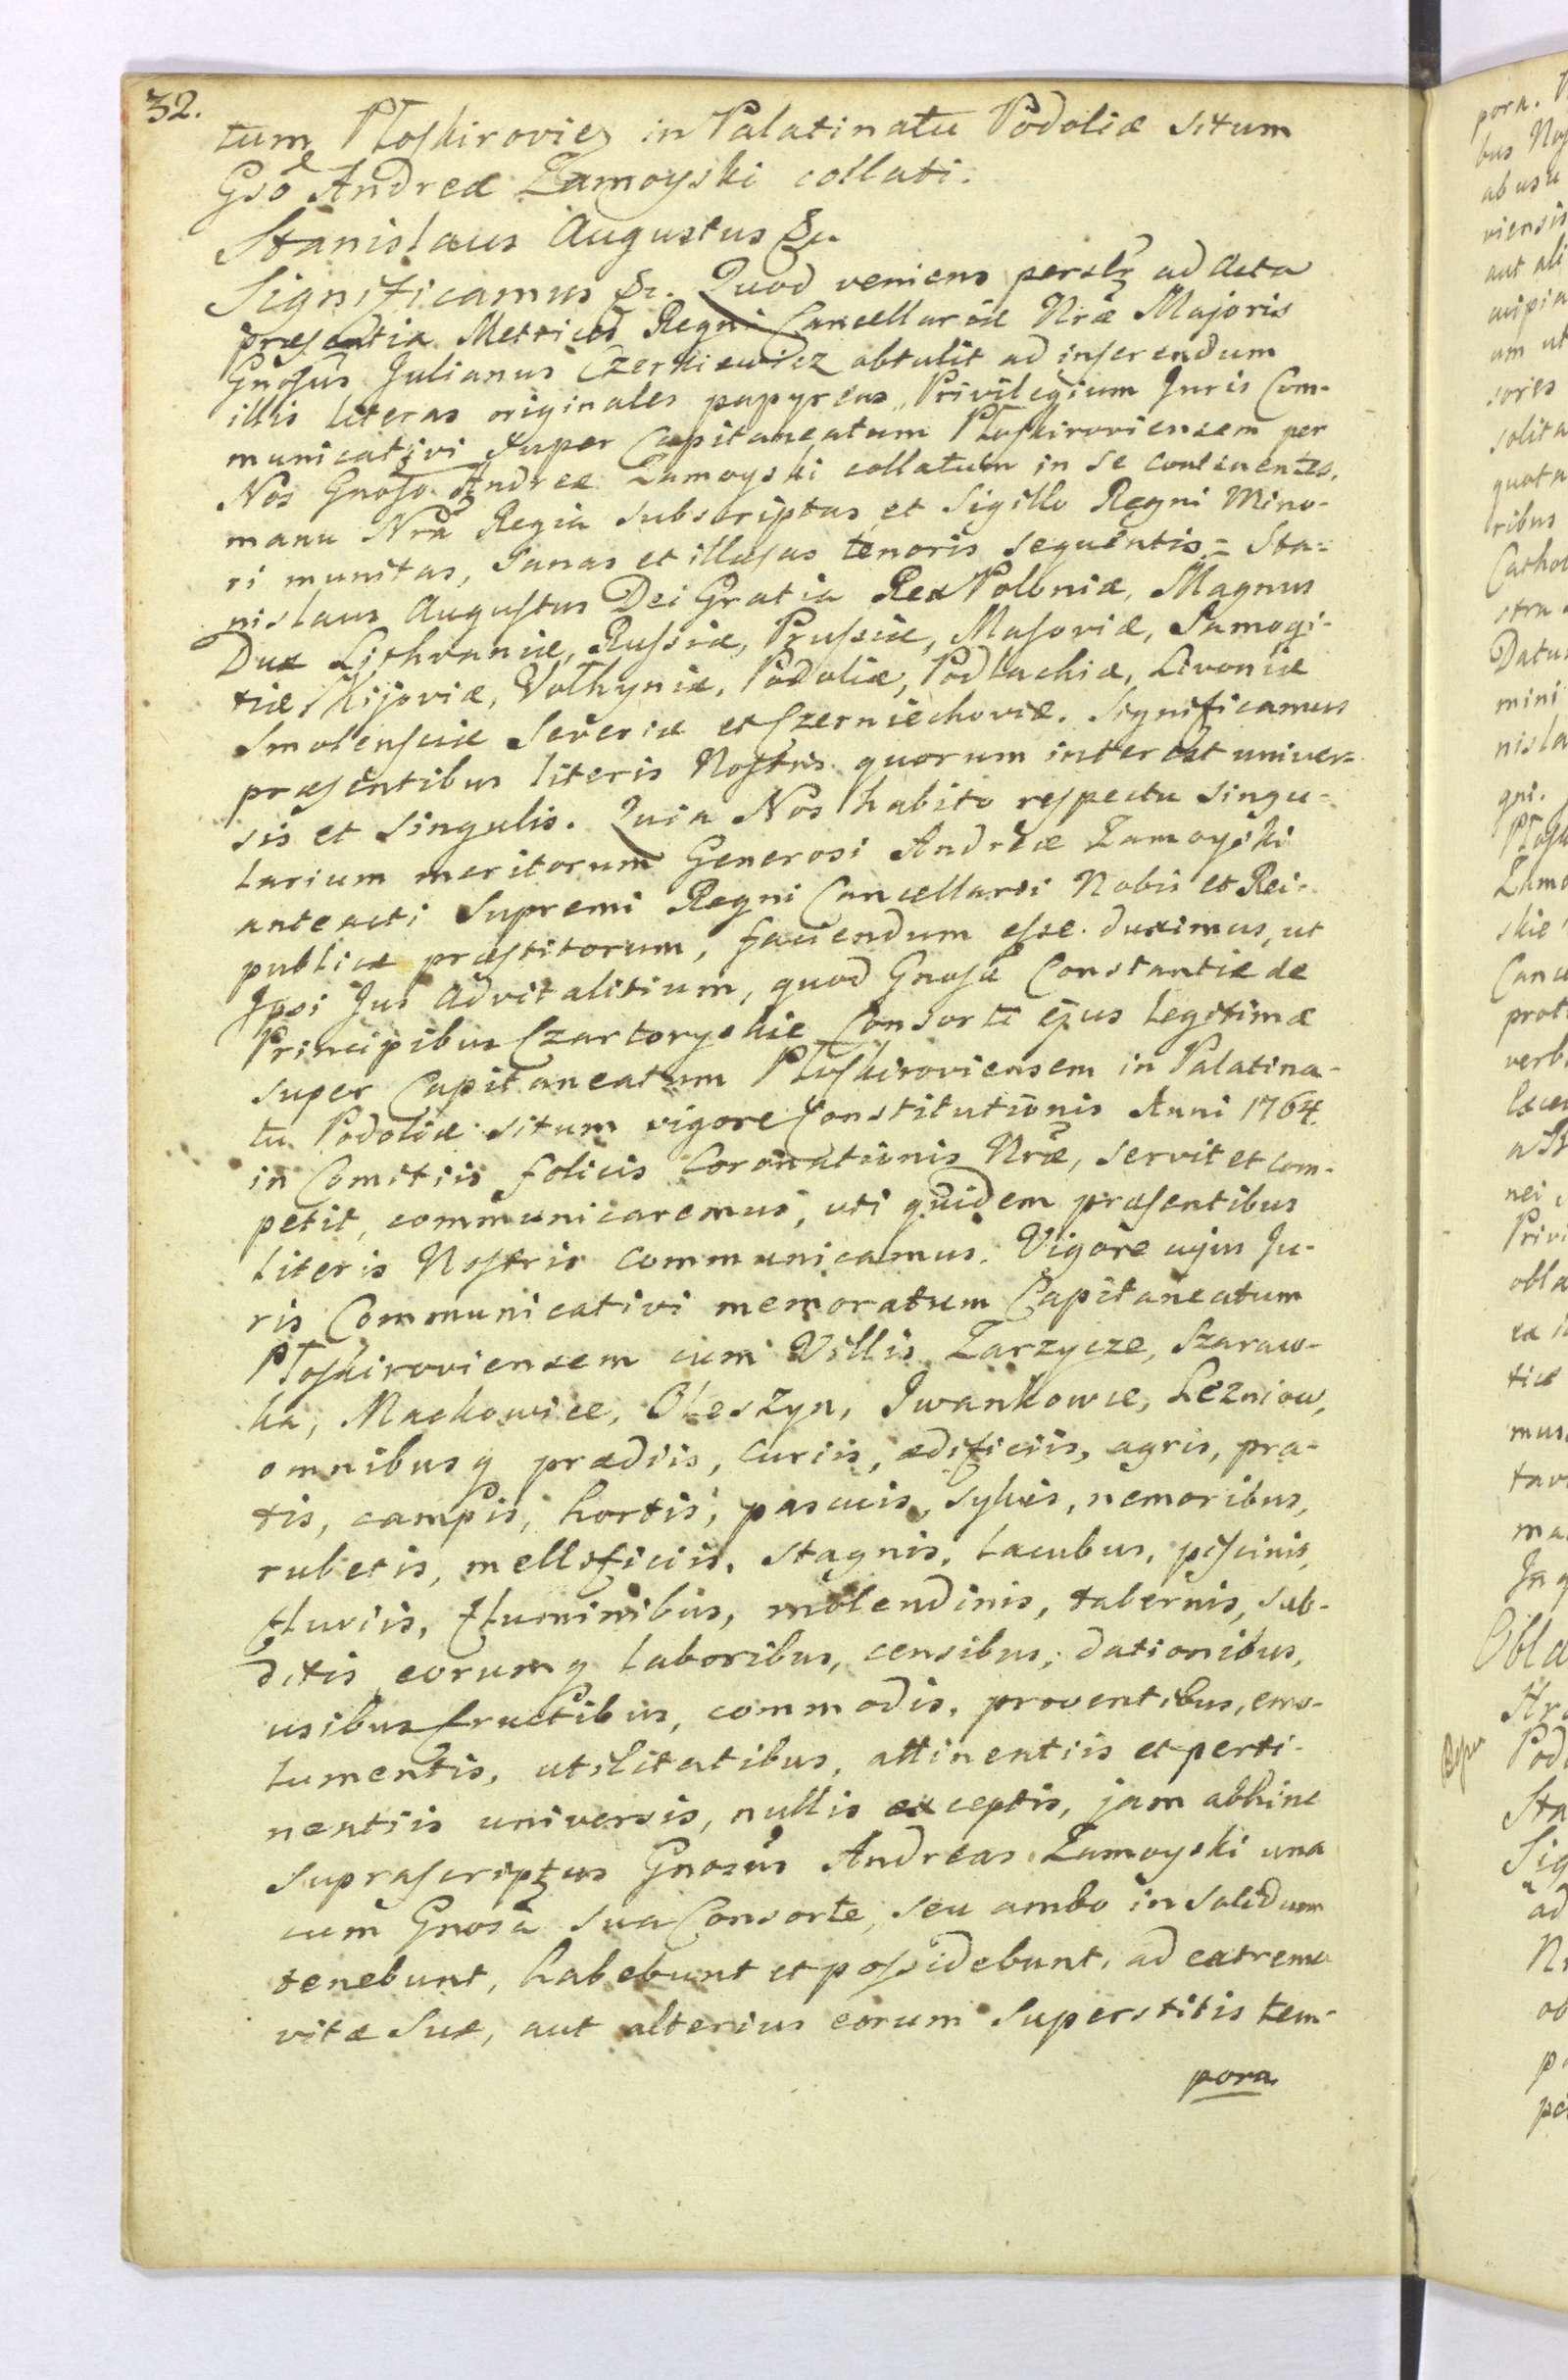 32.
tum Płoskiroviens in Palatinatu Podoliæ situm
Gsō Andreæ Zamoyski collati.
Stanislaus Augustus &c.
Significamus &c. Quod veniens perslr ad Acta
præsentia Metrices Regni Cancellariæ Nræ Majoris
Gnosus Julianus Czerkiewicz obtulit ad inserendum
illis literas originales papyreas, Privilegium Juris Com-
municativi super Capitaneatum Płoskiroviensem per
Nos Gnoso Andreæ Zamoyski collatum in se continentes,
manu Nrā Regia subscriptas et Sigillo Regni Mino-
ri munitas, sanas et illæsas tenoris sequentis = Sta-
nislaus Augustus Dei Gratia Rex Poloniæ, Magnus
Dux Lithvaniæ, Russiæ, Prussiæ, Masoviæ, Samogi-
tiæ, Kijoviæ, Volhyniæ, Podoliæ, Podlachiæ, Livoniæ
Smolensciæ Severiæ et Czerniechoviæ. Significamus
præsentibus literis Nostris quorum interest univer-
sis et singulis. Quia Nos habito respectu singu-
larium meritorum Generosi Andreæ Zamoyski
anteacti Supremi Regni Cancellarii Nobis et Rei-
publicæ præstitorum, faciendum esse duximus, ut
Ipsi Jus advitalitium, quod Gnosæ Constantiæ de
Principibus Czartoryskie Consorti ejus legitimæ
super Capitaneatum Płoskiroviensem in Palatina-
tu Podoliæ situm vigore Constitutionis Anni 1764.
in Comitiis felicis Coronationis Nræ, servit et com-
petit, communicaremus, uti quidem præsentibus
literis Nostris communicamus. Vigore cujus Ju-
ris Communicativi memoratum Capitaneatum
Płoskiroviensem cum Villis Zarzycze, Szaraw-
ka, Mackowice, Oleszyn, Iwankowce, Lezniow,
omnibusq prædiis, curiis, ædificiis, agris, pra-
tis, campis, hortis, pascuis, sylvis, nemoribus,
rubetis, mellificiis, stagnis, lacubus, piscinis,
fluviis, fluminibus, molendinis, tabernis, sub-
ditis eorumq laboribus, censibus, dationibus,
usibusfructibus, commodis, proventibus, emo-
lumentis, utilitatibus, attinentiis et perti-
nentiis universis, nullis exceptis, jam abhinc
suprascriptus Gnosus Andreas Zamoyski una
cum Gnosā sua Consorte, seu ambo in solidum
tenebunt, habebunt et possidebunt, ad extrema
vitæ suæ, aut alterius eorum superstitis tem-
pora